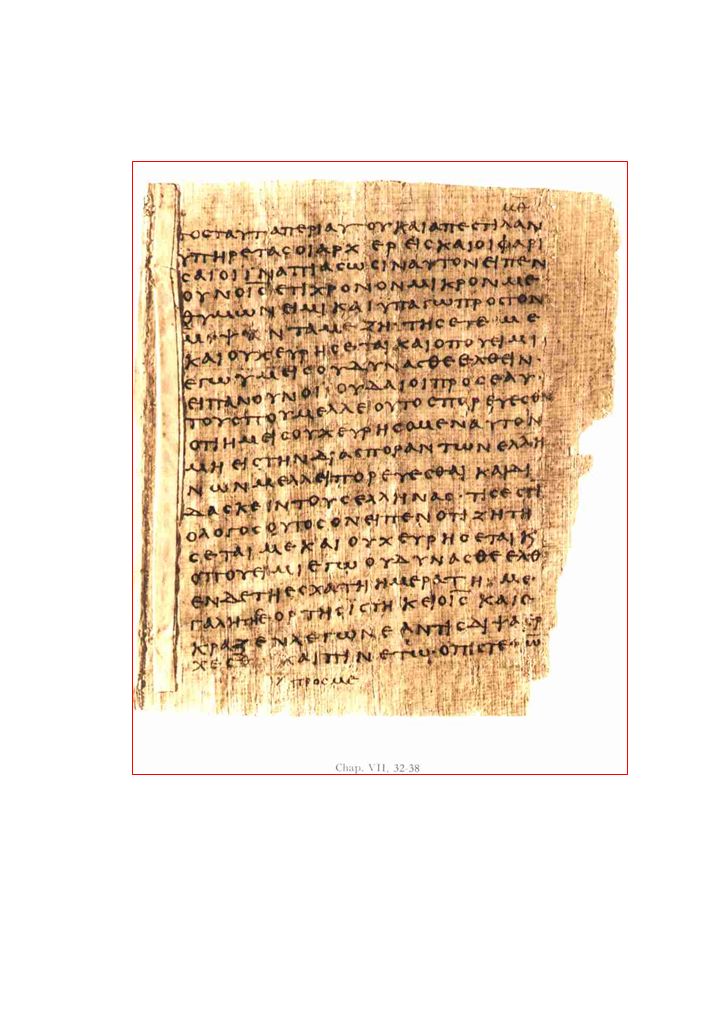 μθ
τος ταυτα περι αυτου και απεστιλαν
υπηρετας οι αρχιερεις και οι φαρι
σαιοι ινα πιασωσιν αυτον ειπεν
ουν ο ις ετι χρονον μικρον με
θ υμων ειμι και υπαγω προς τον
με
και ουχ ευρησεται και οπου ειμι
εγω υμεις ου δυνασθε ελθειν·
ειπαν ουν οι ιουδαιοι προς εαυ
τους που μελλει ουτος πορευεσθαι
οτι ημεις ουχ ευρησομεν αυτον
μη εις την διασποραν των ελλη
νων μελλει πορευεσθαι και δι
δασκειν τους ελληνας· τις εστι
ο λογος ουτος ον ειπεν οτι ζητη
σεται με και ουχ ευρησεται κ
οπου ειμι εγω ου δυνασθε ελθ
εν δε τη εσχατη ημερα τη με
γαλη της εορτης ιστηκει ο ις και ε
κραζεν λεγων ε αν τις διψα ερ
χεσθω και πινετω· ο πιστευω
προς με
Chap. VII, 32-38